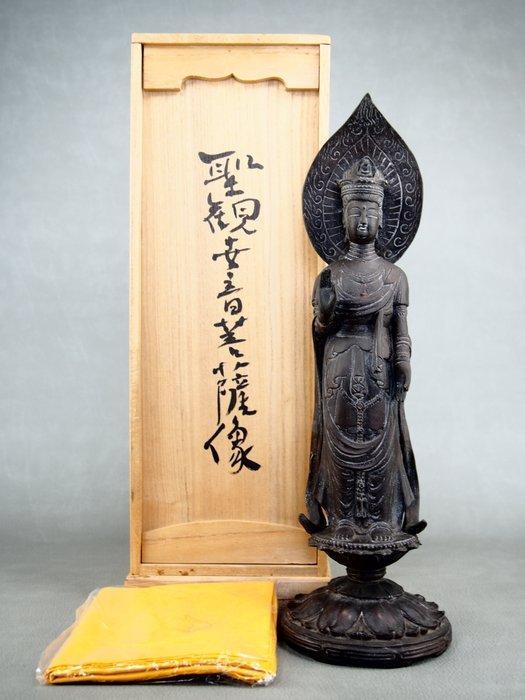 聖観世音菩薩像